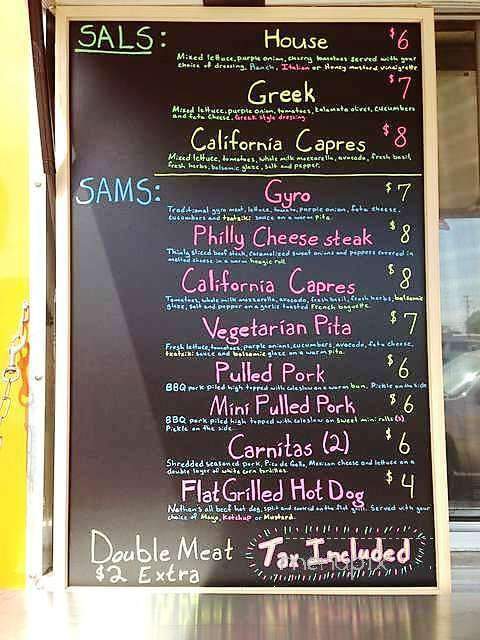 SALS:
House $6
Mixed lettuce, purple onion, cherry tomatoes served with your
choice of dressing. Ranch, Italian or Honey mustard vinaigrette
Greek $7
Mixed lettuce, purple onion, tomatoes, kalamata olives, cucumbers
and feta cheese. Greek style dressing
California Capres $8
Mixed lettuce, tomatoes, whole milk mozzarella, avocado, fresh basil,
fresh herbs, balsamic glaze, salt and pepper.
SAMS:
Gyro $7
Traditional gyro meat, lettuce, tomato, purple onion, feta cheese,
cucumbers and tzatziki sauce on a warm pita.
Philly Cheese steak $8
Thinly sliced beef steak, caramelized sweet onions and peppers covered in
melted cheese in a warm hoagie roll
California Capres $8
Tomatoes, whole milk mozzarella, avocado, fresh basil, fresh herbs, balsamic
glaze, salt and pepper on a garlic toasted French baguette.
Vegetarian Pita $7
Fresh lettuce, tomatoes, purple onions, cucumbers, avocado, feta cheese,
tzatziki sauce and balsamic glaze on a warm pita.
Pulled Pork $6
BBQ pork piled high topped with coleslaw on a warm bun. Pickle on the side
Mini Pulled Pork $6
BBQ pork piled high topped with coleslaw on sweet mini rolls
Pickle on the side.
Carnitas (2) $6
Shredded seasoned pork, Pico de Gallo, Mexican cheese and lettuce on a
double layer of white corn tortillas.
Flat Grilled Hot Dog $4
Nathan's all beef hot dog, split and seared on the flat grill. Served with your
choice of Mayo, Ketchup or Mustard.
Double Meat
$2 Extra
Tax Included
menupix